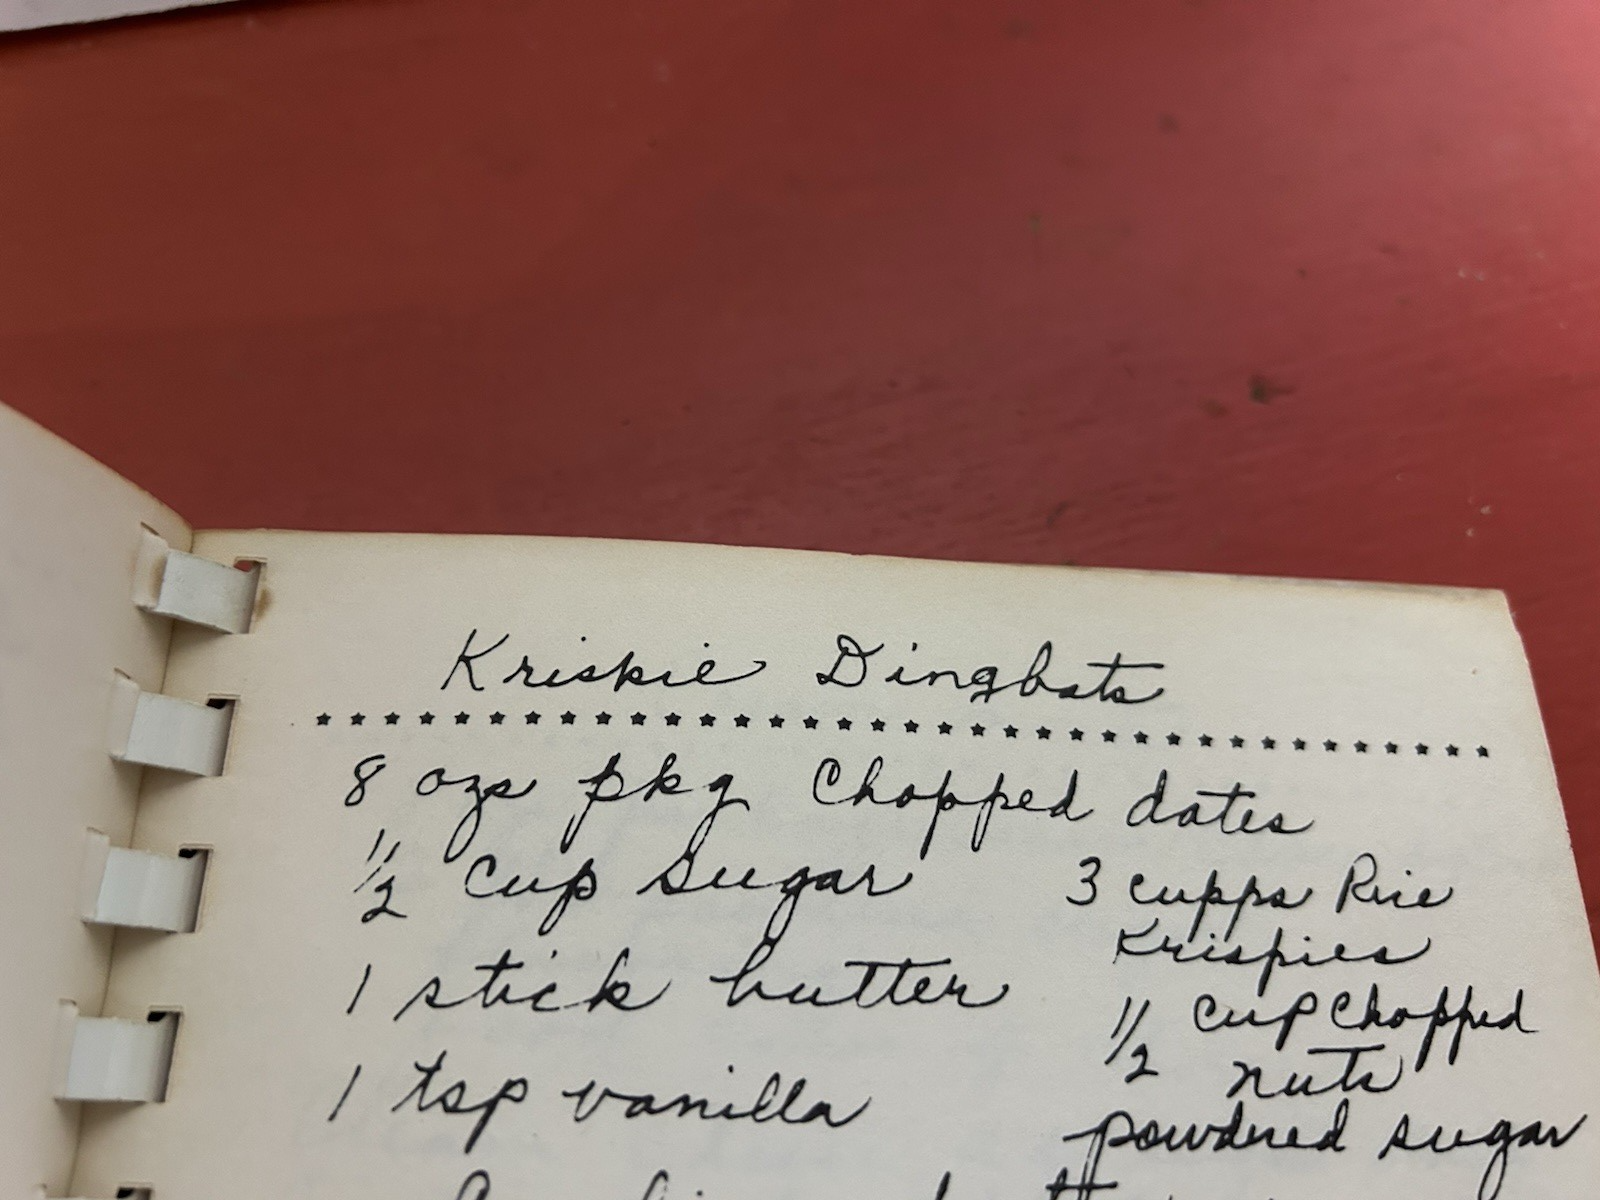 Kriskie Dingbats
8 ozs pkg Chopped dates
1/2 cup sugar
1 stick butter
1 tsp vanilla
3 cupps Rice
Krispies
1/2 cup Chopped
nuts
powdered sugar